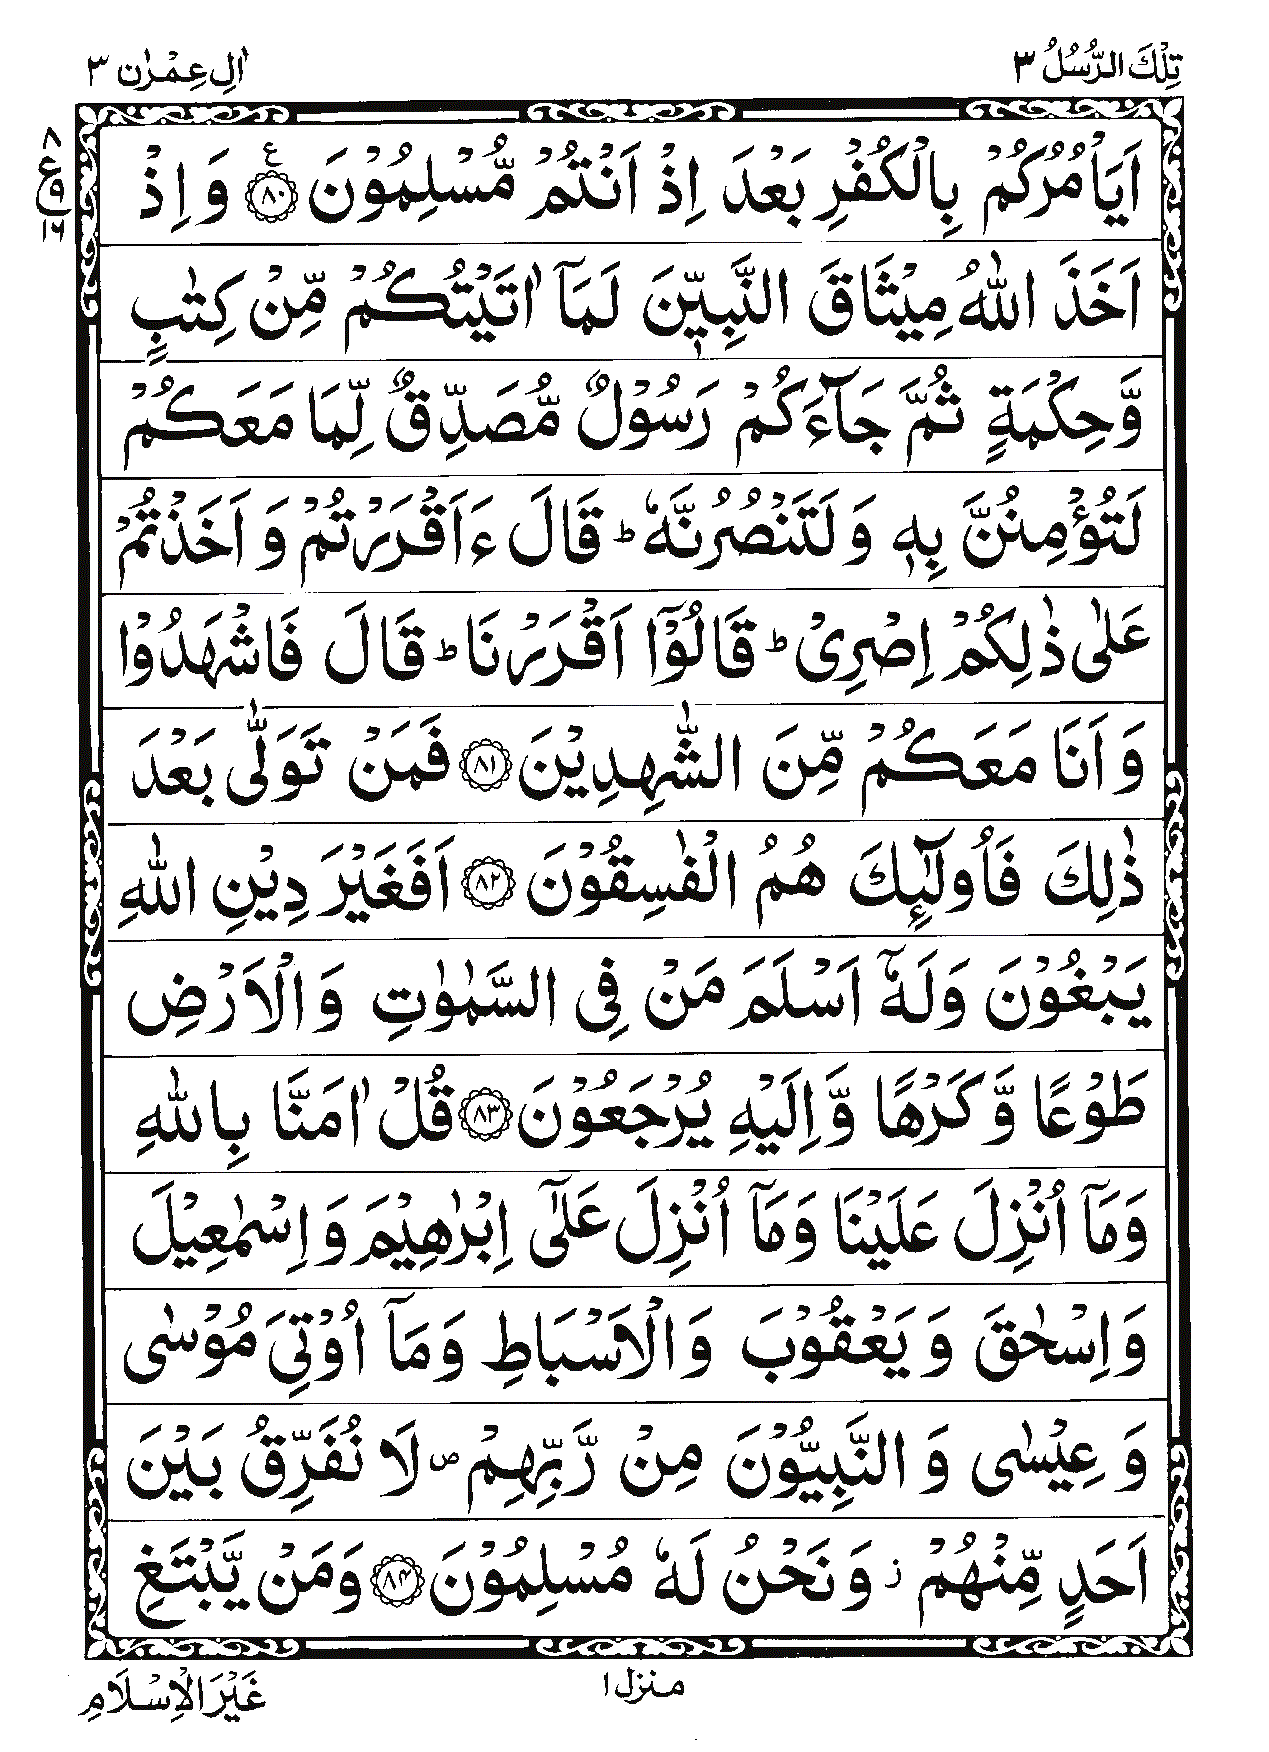 تِلْكَ الرُّسُلُ ٣
اٰلِ عِمْرٰن ٣
اَيَاْمُرُكُمْ بِالْكُفْرِ بَعْدَ اِذْ اَنْتُمْ مُّسْلِمُوْنَ ۧ ﴿٨٠﴾ وَ اِذْ
٨
ع
٩
١٦
اَخَذَ اللّٰهُ مِيْثَاقَ النَّبِيّٖنَ لَمَاۤ اٰتَيْتُكُمْ مِّنْ كِتٰبٍ
وَّحِكْمَةٍ ثُمَّ جَآءَكُمْ رَسُوْلٌ مُّصَدِّقٌ لِّمَا مَعَكُمْ
لَتُؤْمِنُنَّ بِهٖ وَ لَتَنْصُرُنَّهٗ ؕ قَالَ ءَاَقْرَرْتُمْ وَ اَخَذْتُمْ
عَلٰى ذٰلِكُمْ اِصْرِىْ ؕ قَالُوْۤا اَقْرَرْنَا ؕ قَالَ فَاشْهَدُوْا
وَ اَنَا مَعَكُمْ مِّنَ الشّٰهِدِيْنَ ﴿٨١﴾ فَمَنْ تَوَلّٰى بَعْدَ
ذٰلِكَ فَاُولٰٓئِكَ هُمُ الْفٰسِقُوْنَ ﴿٨٢﴾ اَفَغَيْرَ دِيْنِ اللّٰهِ
يَبْغُوْنَ وَلَهٗۤ اَسْلَمَ مَنْ فِى السَّمٰوٰتِ وَالْاَرْضِ
طَوْعًا وَّ كَرْهًا وَّ اِلَيْهِ يُرْجَعُوْنَ ﴿٨٣﴾ قُلْ اٰمَنَّا بِاللّٰهِ
وَمَاۤ اُنْزِلَ عَلَيْنَا وَمَاۤ اُنْزِلَ عَلٰٓى اِبْرٰهِيْمَ وَ اِسْمٰعِيْلَ
وَ اِسْحٰقَ وَ يَعْقُوْبَ وَالْاَسْبَاطِ وَ مَاۤ اُوْتِىَ مُوْسٰى
وَ عِيْسٰى وَ النَّبِيُّوْنَ مِنْ رَّبِّهِمْ ۪ لَا نُفَرِّقُ بَيْنَ
اَحَدٍ مِّنْهُمْ ز وَ نَحْنُ لَهٗ مُسْلِمُوْنَ ﴿٨٤﴾ وَمَنْ يَّبْتَغِ
منزل ١
غَيْرَ الْاِسْلَامِ